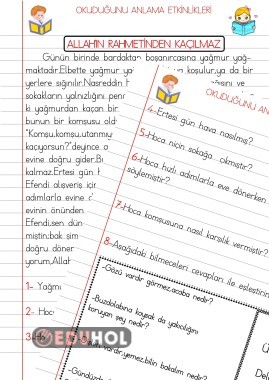 OKUDUĞUNU ANLAMA ETKİNLİKLERİ
ALLAH'IN RAHMETİNDEN KAÇILMAZ
Günün birinde bardaktan boşanırcasına yağmur yağ-
maktadır.Elbette yağmur
koşulur,ya da bir
yerlere sığınılır.Nasreddin
sokakların yalnızlığını
ki yağmurdan kaçan bir
bunun bir komşusu
"Komşu,komşu,utanmıy
kaçıyorsun?",deyince
evine doğru gider.
kalmaz.Ertesi gün
Efendi alışveriş için
adımlarla evine
evinin önünden
Efendi,sen dün
miştin;bak şim
doğru döner
yorum,Allah
1- Yağmu
2- Hoc
3-
OKUDUĞUNU ANLAMA
4-Ertesi gün hava nasılmış?
5-Hoca niçin sokağa çıkmıştır?
6-Hoca hızlı adımlarla eve dönerken
söylemiştir?
7-Hoca komşusuna nasıl karşılık vermiştir?
8-Aşağıdaki bilmeceleri cevapları ile eşleştirin
-Gözü vardır görmez,acaba nedir?
-Buzdolabına koysak da yakıcılığını
koruyan şey nedir?
vardır,yemez,bilin bakalım nedir?
-Gündüz
EDUHOL